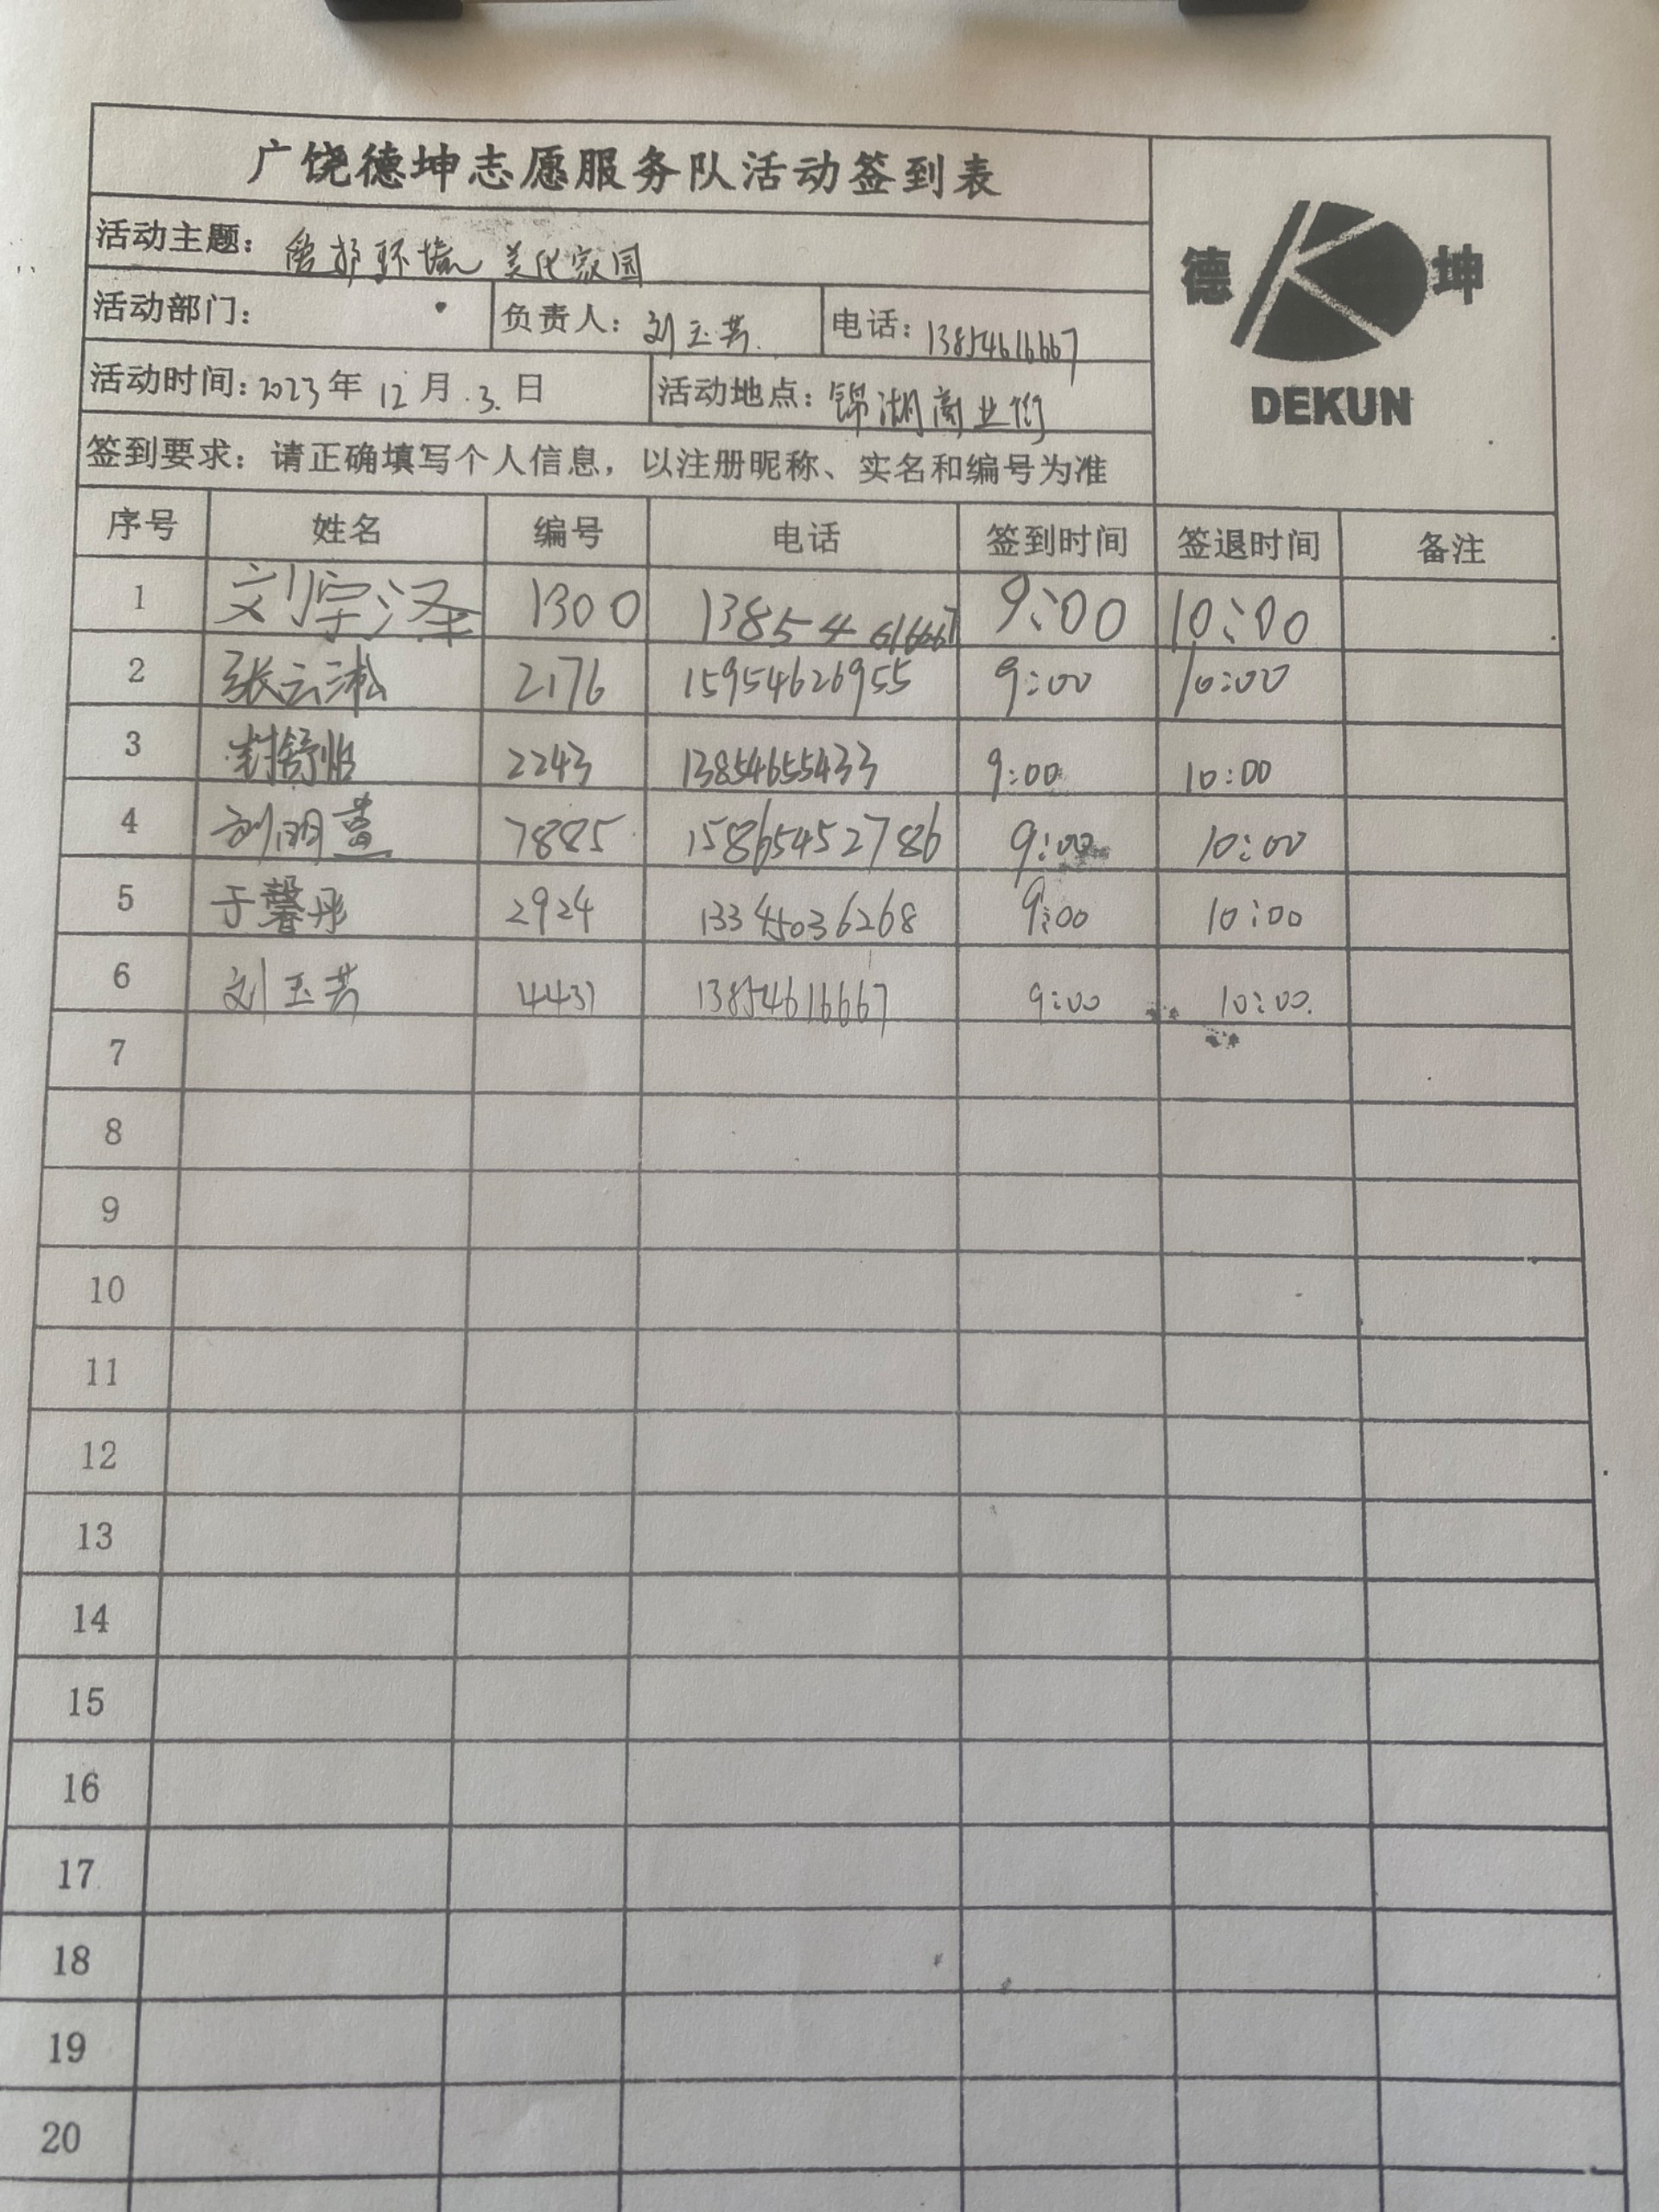 广饶德坤志愿服务队活动签到表
活动主题：爱护环境 美化家园
德 坤
DEKUN
活动部门： 负责人：刘玉芸 电话：13854616667
活动时间：2023年12月3日 活动地点：锦湖商业街
签到要求：请正确填写个人信息，以注册昵称、实名和编号为准
序号 姓名 编号 电话 签到时间 签退时间 备注
1 刘宇泽 1300 13854616667 9:00 10:00
2 张云淞 2176 15954626955 9:00 10:00
3 封舒怡 2243 13854655433 9:00 10:00
4 刘明 7885 15865452786 9:00 10:00
5 于馨彤 2924 13345036268 9:00 10:00
6 刘玉芸 4431 13854616667 9:00 10:00
7
8
9
10
11
12
13
14
15
16
17
18
19
20